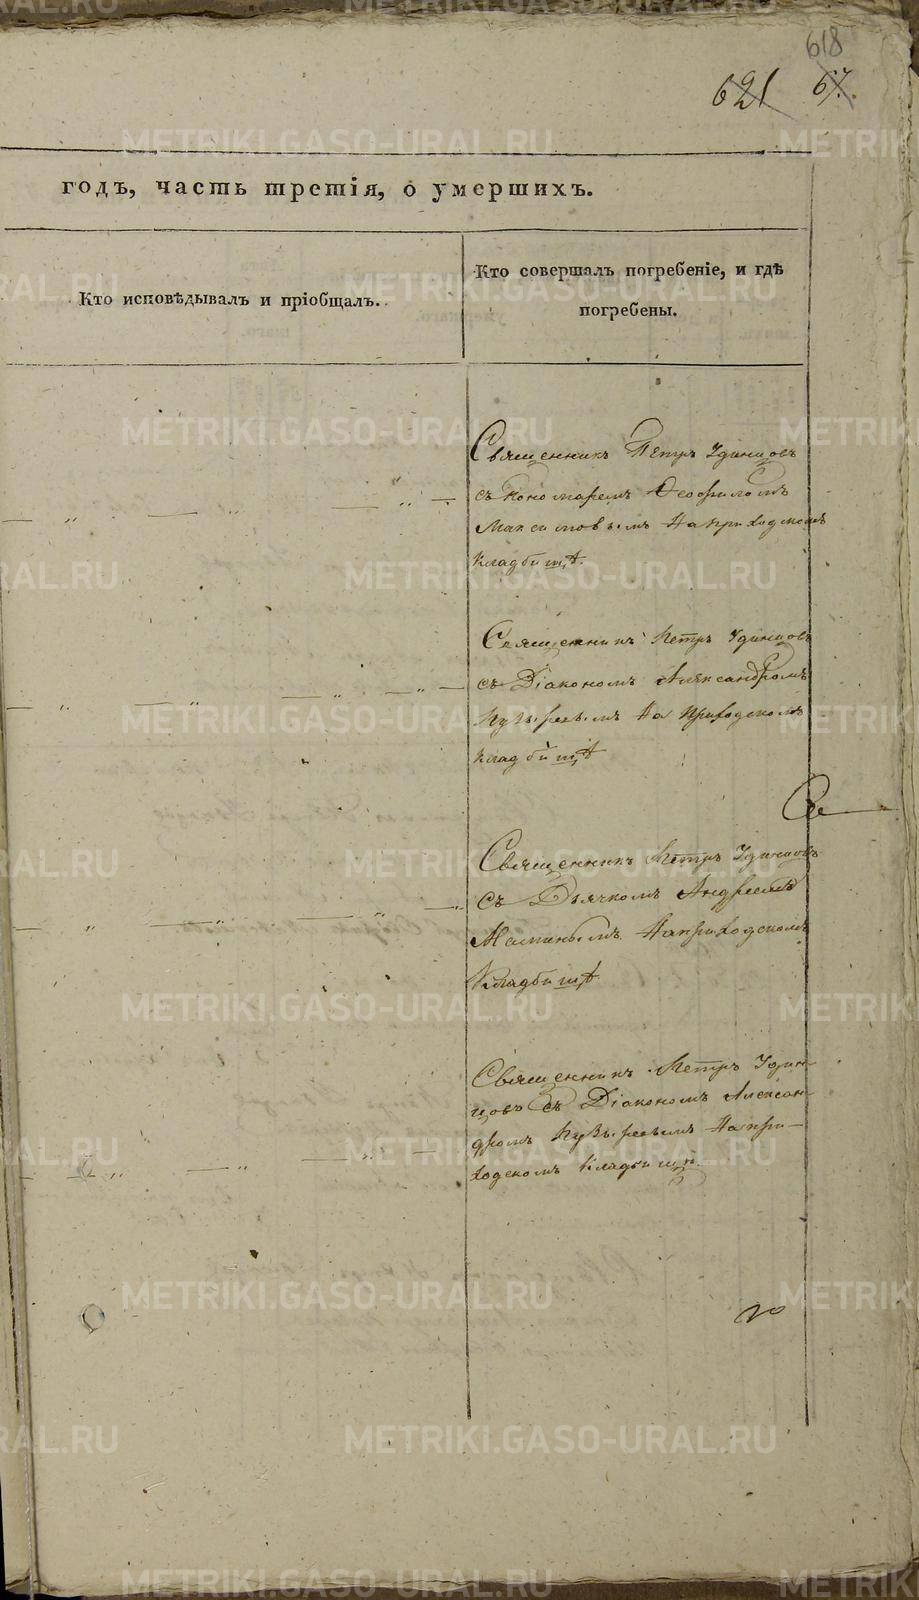 618
621 67.
годъ, часть третія, о умершихъ.
Кто исповѣдывалъ и пріобщалъ.
Кто совершалъ погребеніе, и гдѣ
погребены.
Священникъ Петръ Удинцовъ
съ Пономаремъ Ѳеофиломъ
Максимовымъ На приходскомъ
Кладбищѣ.
Священникъ Петръ Удинцовъ
съ Діакономъ Александромъ
Пузыревымъ На приходскомъ
Кладбищѣ
Священникъ Петръ Удинцовъ
съ Дьячкомъ Андреемъ
На приходскомъ
Кладбищѣ
Священникъ Петръ Удин-
цовъ съ Діакономъ Алексан-
дромъ Пузыревымъ На при-
ходскомъ Кладбищѣ.
METRIKI.GASO-URAL.RU